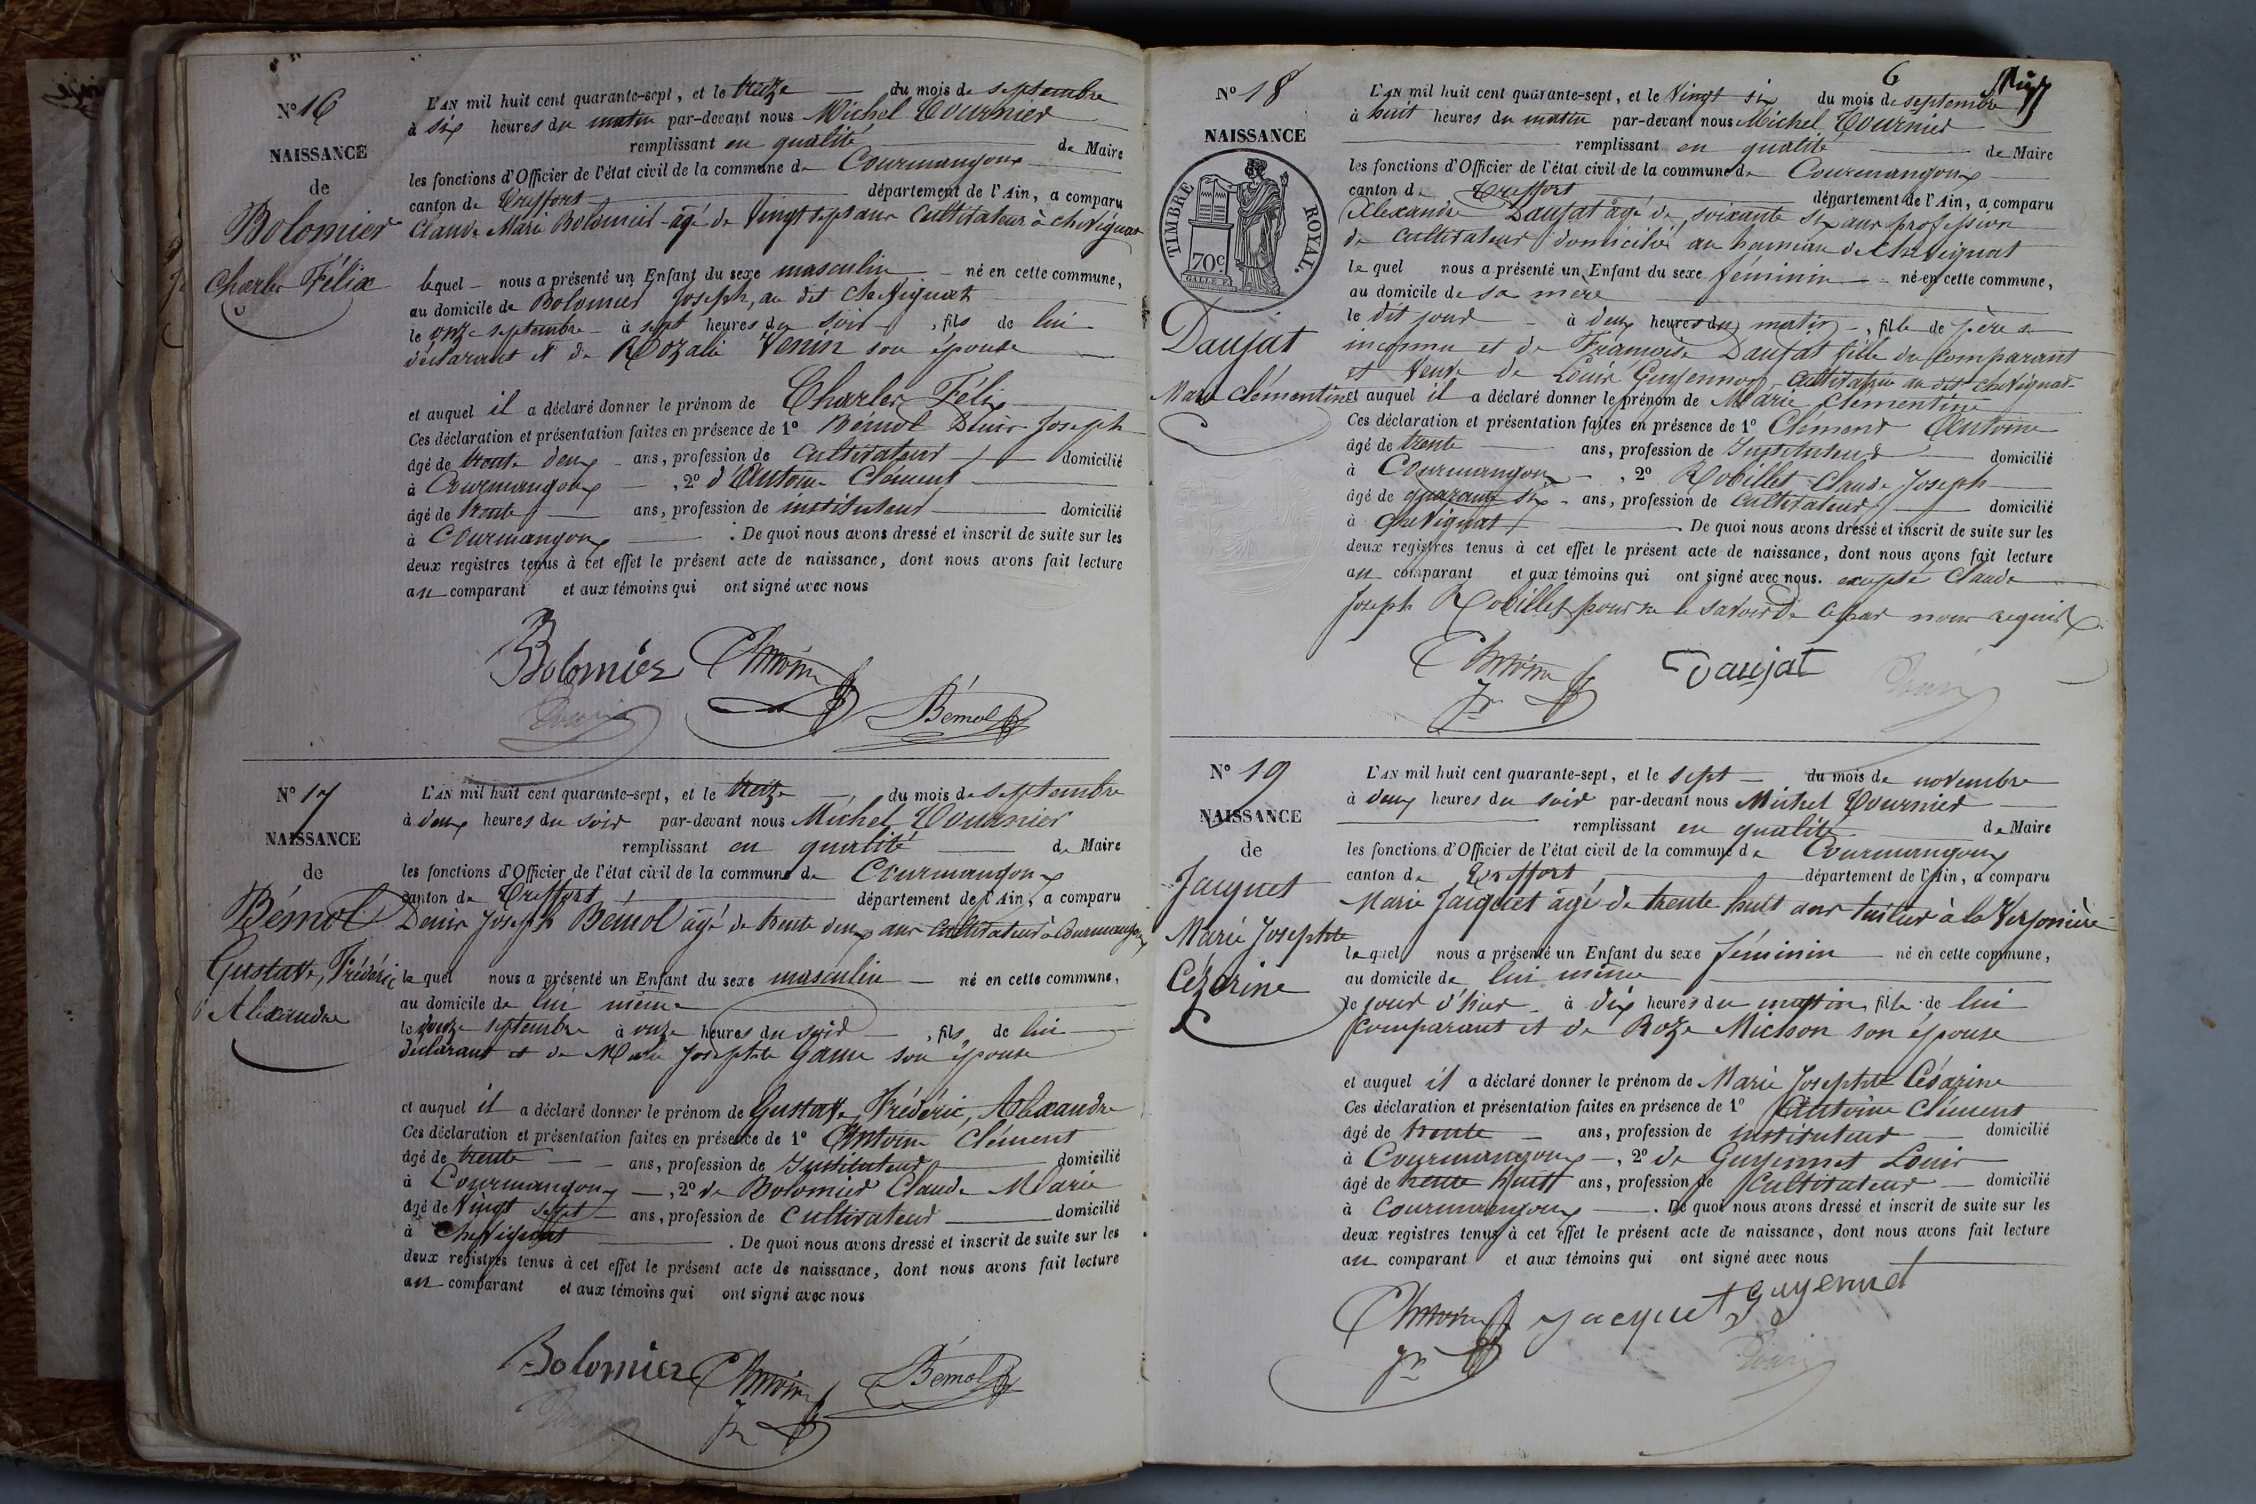 No 16
NAISSANCE
de
Bolomier
Charles Félix
L'AN mil huit cent quarante-sept, et le treize du mois de septembre
à six heures du matin par-devant nous Michel Tournier
remplissant en qualité de Maire
les fonctions d'Officier de l'état civil de la commune de Courmangoux
canton de Treffort département de l'Ain, a comparu
Claude Marie Bolomier âgé de Vingt sept ans cultivateur à chevignat
lequel nous a présenté un Enfant du sexe masculin né en cette commune,
au domicile de Bolomier Joseph, au dit chevignat
le onze septembre à sept heures du soir, fils de lui
déclarant et de Rozalie Venin son épouse
et auquel il a déclaré donner le prénom de Charles Félix
Ces déclaration et présentation faites en présence de 1º Bémol Denis Joseph
âgé de trente deux ans, profession de cultivateur domicilié
à Courmangoux, 2º d'Antoine Clément
âgé de trente ans, profession de instituteur domicilié
à Courmangoux. De quoi nous avons dressé et inscrit de suite sur les
deux registres tenus à cet effet le présent acte de naissance, dont nous avons fait lecture
au comparant et aux témoins qui ont signé avec nous
Bolomier Antoine
Bémol
No 17
NAISSANCE
de
Bémol
Gustave, Frédéric
Alexandre
L'AN mil huit cent quarante-sept, et le treize du mois de septembre
à deux heures du soir par-devant nous Michel Tournier
remplissant en qualité de Maire
les fonctions d'Officier de l'état civil de la commune de Courmangoux
canton de Treffort département de l'Ain, a comparu
Denis Joseph Bémol âgé de trente deux ans cultivateur à Courmangoux
lequel nous a présenté un Enfant du sexe masculin né en cette commune,
au domicile de lui même
le douze septembre à onze heures du soir, fils de lui
déclarant et de Marie Josephte Game son épouse
et auquel il a déclaré donner le prénom de Gustave, Frédéric, Alexandre
Ces déclaration et présentation faites en présence de 1º Antoine Clément
âgé de trente ans, profession de Instituteur domicilié
à Courmangoux, 2º de Bolomier Claude Marie
âgé de Vingt sept ans, profession de cultivateur domicilié
à Chevignat. De quoi nous avons dressé et inscrit de suite sur les
deux registres tenus à cet effet le présent acte de naissance, dont nous avons fait lecture
au comparant et aux témoins qui ont signé avec nous
Bolomier Antoine Bémol
Jn
6
No 18
NAISSANCE
TIMBRE ROYAL.
70c
Daujat
Marie Clémentine
L'AN mil huit cent quarante-sept, et le Vingt six du mois de septembre
à huit heures du matin par-devant nous Michel Tournier
remplissant en qualité de Maire
les fonctions d'Officier de l'état civil de la commune de Courmangoux
canton de Treffort département de l'Ain, a comparu
Alexandre Daujat âgé de soixante six ans profession
de cultivateur domicilié au hameau de Chevignat
lequel nous a présenté un Enfant du sexe féminin né en cette commune,
au domicile de sa mère
le dit jour à deux heures du matin, fille de père
inconnu et de Françoise Daujat fille du comparant
et Veuve de Louis Guyennot cultivatrice au dit chevignat
et auquel il a déclaré donner le prénom de Marie Clémentine
Ces déclaration et présentation faites en présence de 1º Clément Antoine
âgé de trente ans, profession de Instituteur domicilié
à Courmangoux, 2º Robillet Claude Joseph
âgé de quarante six ans, profession de cultivateur domicilié
à Chevignat. De quoi nous avons dressé et inscrit de suite sur les
deux registres tenus à cet effet le présent acte de naissance, dont nous avons fait lecture
au comparant et aux témoins qui ont signé avec nous. excepté Claude
Joseph Robillet pour ne le savoir de ce par nous requis
Antoine Daujat
Jn
No 19
NAISSANCE
de
Jacquet
Marie Josephte
Cézarine
L'AN mil huit cent quarante-sept, et le sept du mois de novembre
à deux heures du soir par-devant nous Michel Tournier
remplissant en qualité de Maire
les fonctions d'Officier de l'état civil de la commune de Courmangoux
canton de Treffort département de l'Ain, a comparu
Marie Jacquet âgé de trente huit ans tuilier à la Verjonnière
lequel nous a présenté un Enfant du sexe féminin né en cette commune,
au domicile de lui même
le jour d'hier à dix heures du matin, fille de lui
comparant et de Roze Michon son épouse
et auquel il a déclaré donner le prénom de Marie Josephte Césarine
Ces déclaration et présentation faites en présence de 1º Antoine Clément
âgé de trente ans, profession de instituteur domicilié
à Courmangoux, 2º de Guyennet Louis
âgé de trente huit ans, profession de cultivateur domicilié
à Courmangoux. De quoi nous avons dressé et inscrit de suite sur les
deux registres tenus à cet effet le présent acte de naissance, dont nous avons fait lecture
au comparant et aux témoins qui ont signé avec nous
Antoine Jacquet Guyennet
Jn